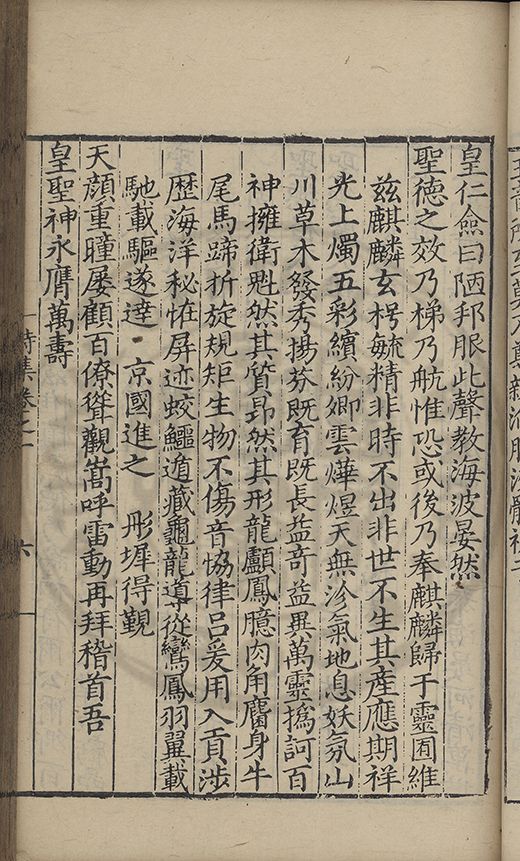 皇仁僉曰陋邦服此聲教海波晏然
聖德之效乃梯乃航惟恐或後乃奉麒麟歸于靈囿維
茲麒麟玄枵毓精非時不出非世不生其產應期祥
光上燭五彩繽紛卿雲燁煜天無沴氣地息妖氛山
川草木發秀揚芬既育既長益奇益異萬靈撝訶百
神擁衛魁然其質昂然其形龍顱鳳臆肉角麕身牛
尾馬蹄折旋規矩生物不傷音協律呂爰用入貢涉
歷海洋秘怪屏迹蛟鱷遁藏龜龍導從鸞鳳羽翼載
馳載驅遂達 京國進之 彤墀得覲
天顏重瞳屢顧百僚聳觀嵩呼雷動再拜稽首吾
皇聖神永膺萬壽
詩集卷之一
六